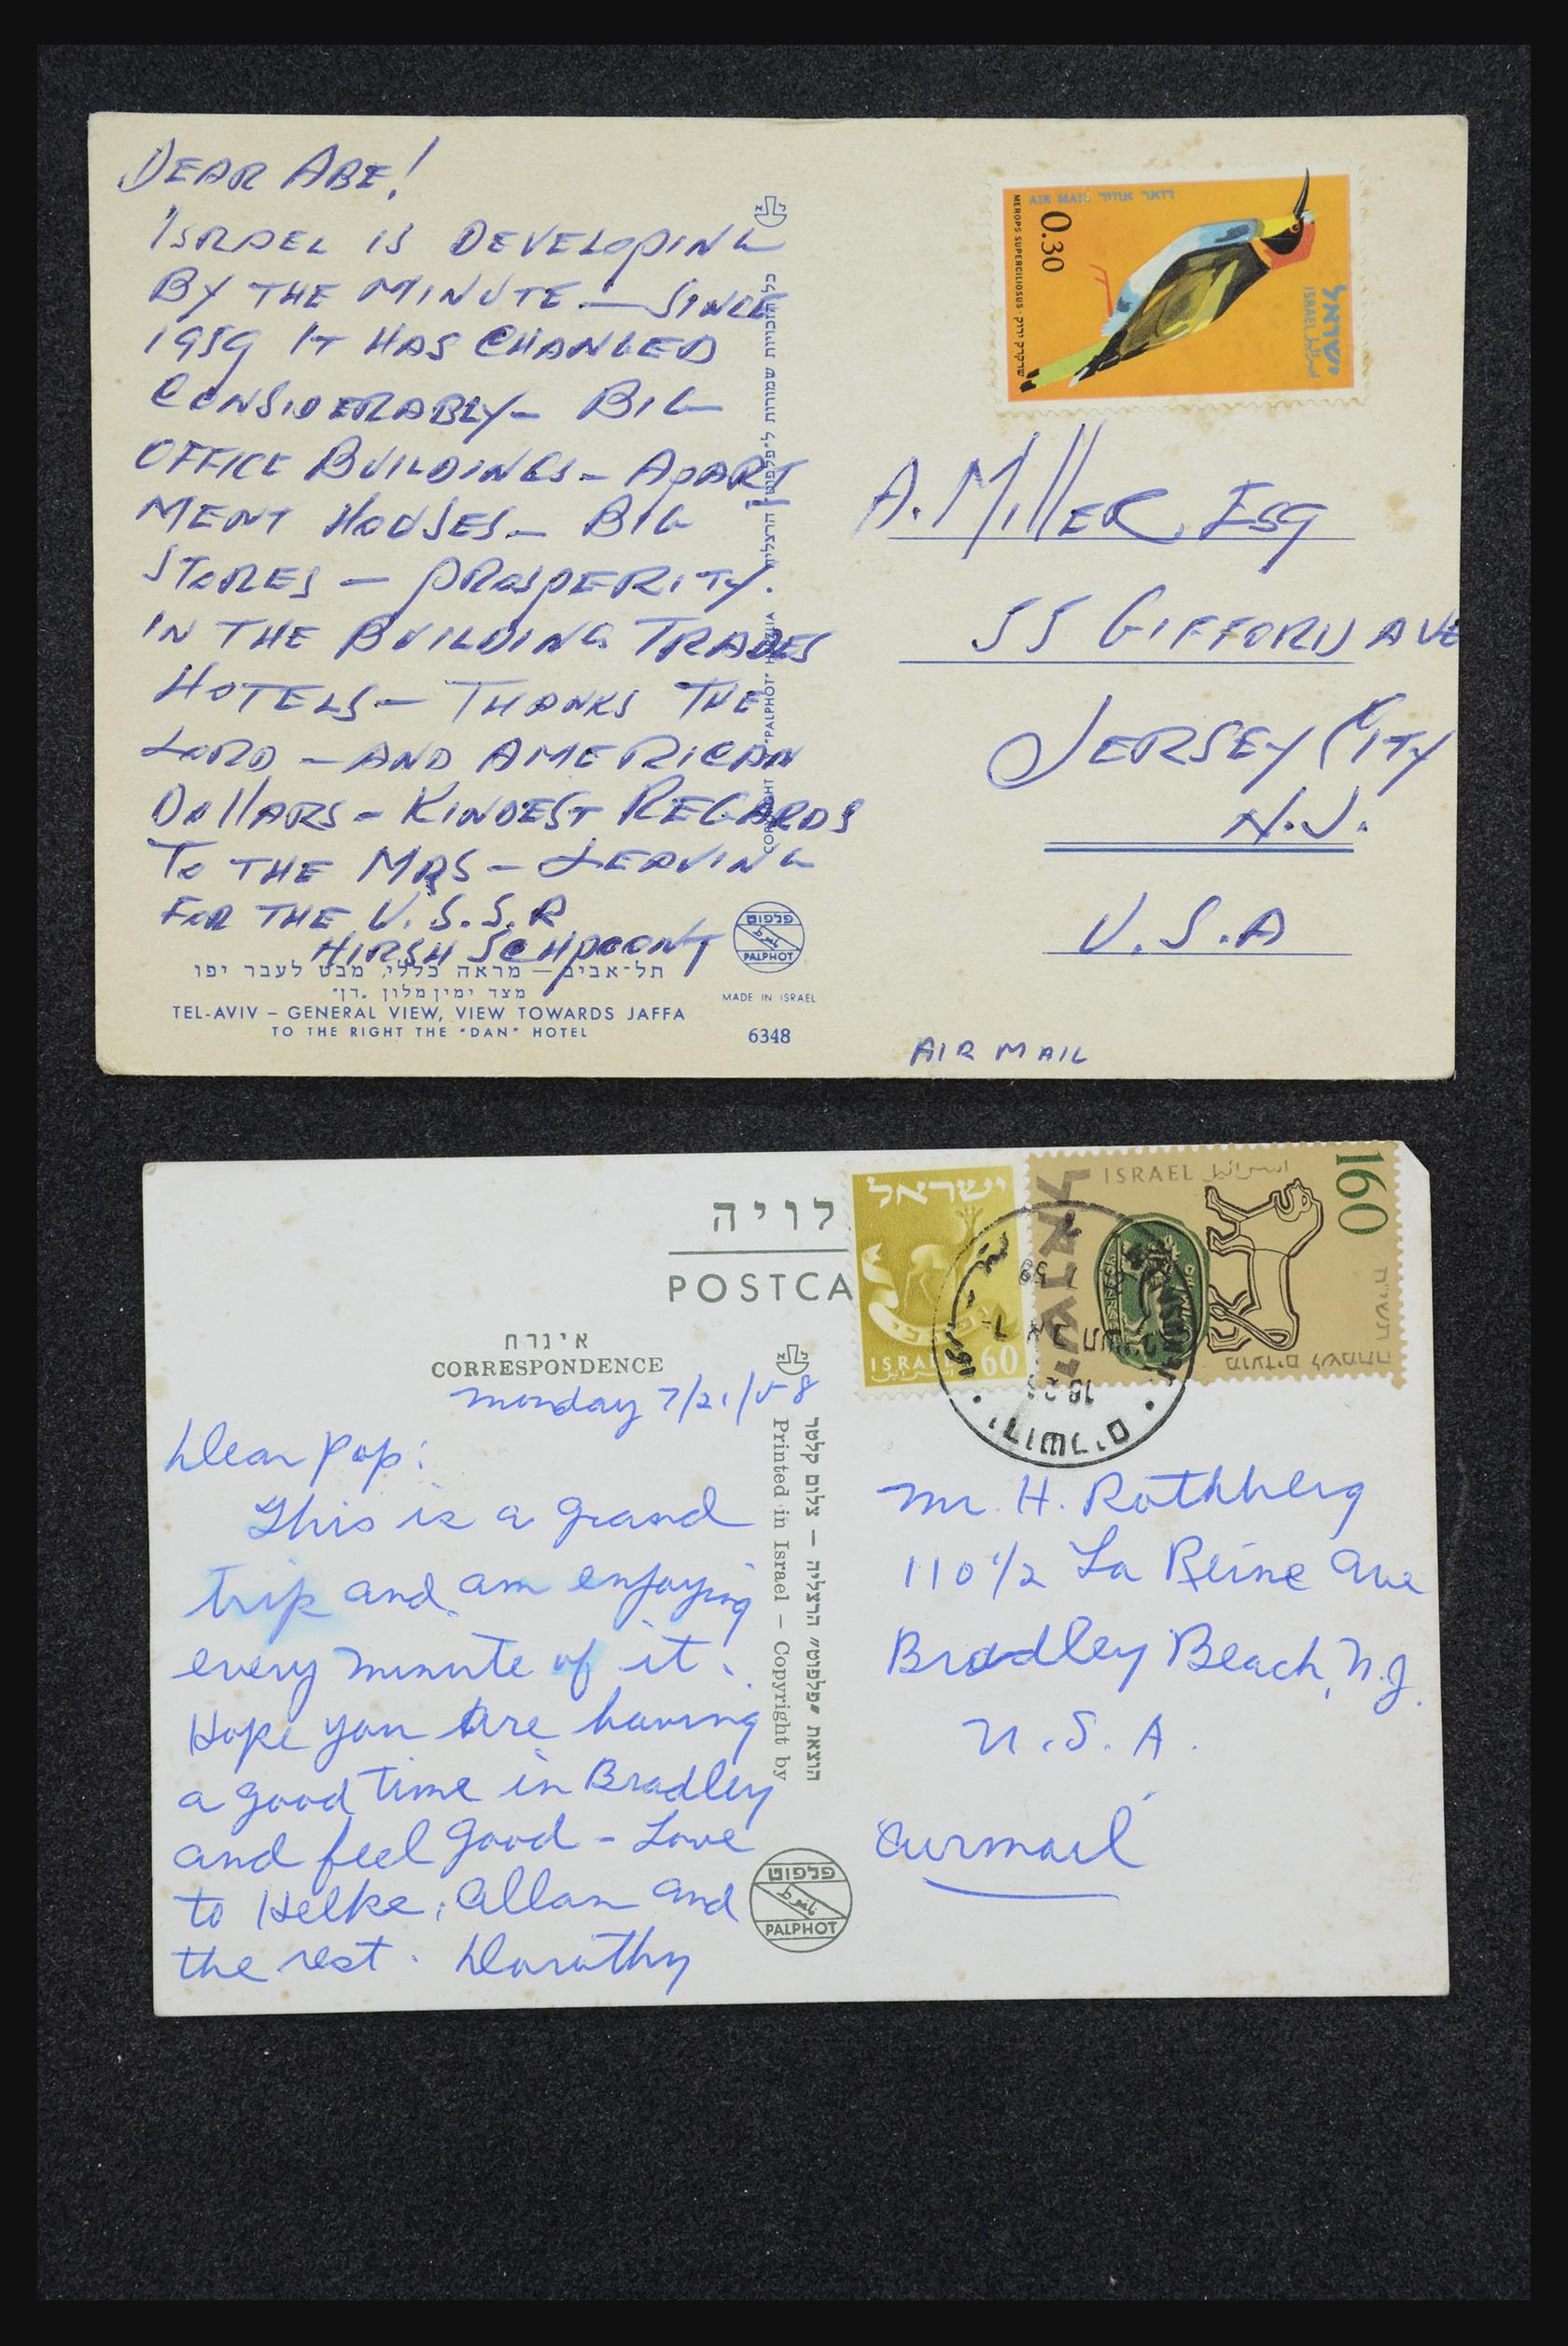 DEAR ABE!
ISRAEL IS DEVELOPING
BY THE MINUTE — SINCE
1959 IT HAS CHANGED
CONSIDERABLY — BIG
OFFICE BUILDINGS — APART
MENT HOUSES — BIG
STORES — PROSPERITY.
IN THE BUILDING TRADES
HOTELS — THANKS THE
LORD — AND AMERICAN
DOLLARS — KINDEST REGARDS
TO THE MRS — LEAVING
FOR THE U.S.S.R
HIRSH
תל־אביב — מראה כללי, מבט לעבר יפו
מצד ימין מלון "דן"
TEL-AVIV – GENERAL VIEW, VIEW TOWARDS JAFFA
TO THE RIGHT THE "DAN" HOTEL
פלפוט
PALPHOT
MADE IN ISRAEL
6348
כל הזכויות שמורות ל"פלפוט" הרצליה
COPYRIGHT "PALPHOT" HERZLIA
AIR MAIL דואר אוויר
0.30
MEROPS SUPERCILIOSUS · שרקרק ירוק
ישראל
ISRAEL اسرائيل
A. MILLER, ESQ
55 GIFFORD AVE
JERSEY CITY
N.J.
U.S.A
AIR MAIL
לויה
POSTCA
איגרת
CORRESPONDENCE
Monday 7/21/58
Dear Pop:
This is a grand
trip and am enjoying
every minute of it.
Hope you are having
a good time in Bradley
and feel good - Love
to Helke, Allan and
the rest. Dorothy
Printed in Israel — Copyright by
הוצאת "פלפוט" הרצליה — צלום קלטר
פלפוט
PALPHOT
ישראל
ISRAEL
60
ישראל
ISRAEL اسرائيل
160
מועדים לשמחה
תשי"ח
ירושלים
Mr. H. Rothberg
110 1/2 La Reine Ave
Bradley Beach, N.J.
U.S.A.
Airmail